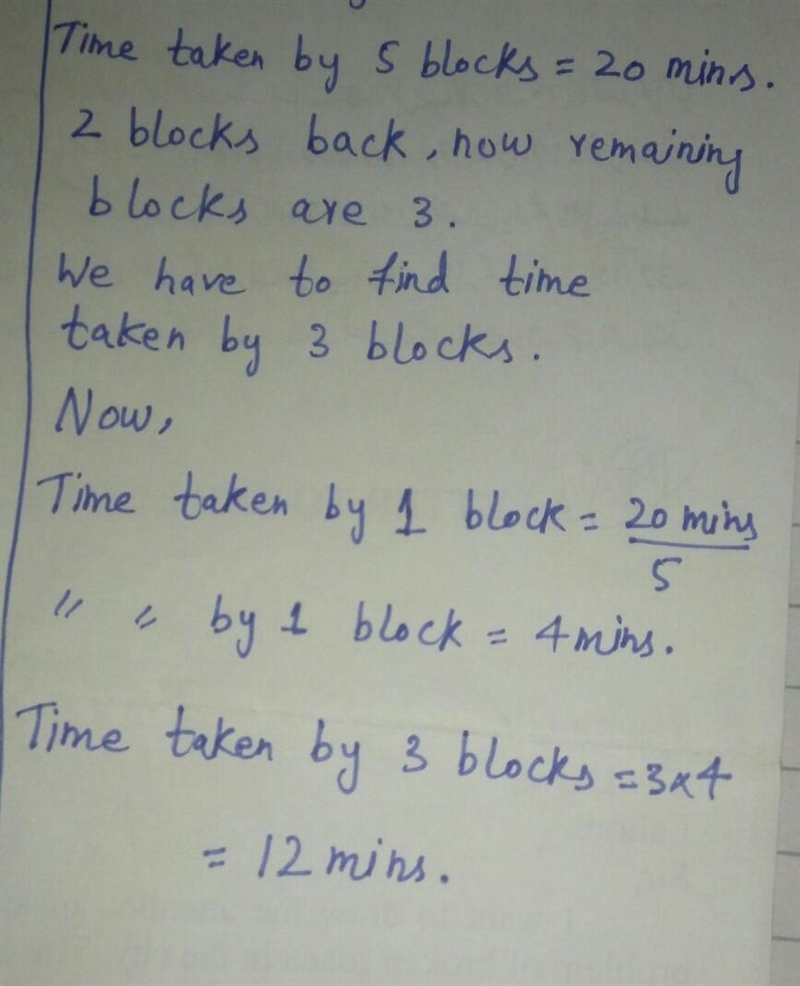 Time taken by 5 blocks = 20 mins.
2 blocks back, now remaining
blocks are 3.
We have to find time
taken by 3 blocks.
Now,
Time taken by 1 block = 20 mins
5
" " by 1 block = 4 mins.
Time taken by 3 blocks = 3x4
= 12 mins.